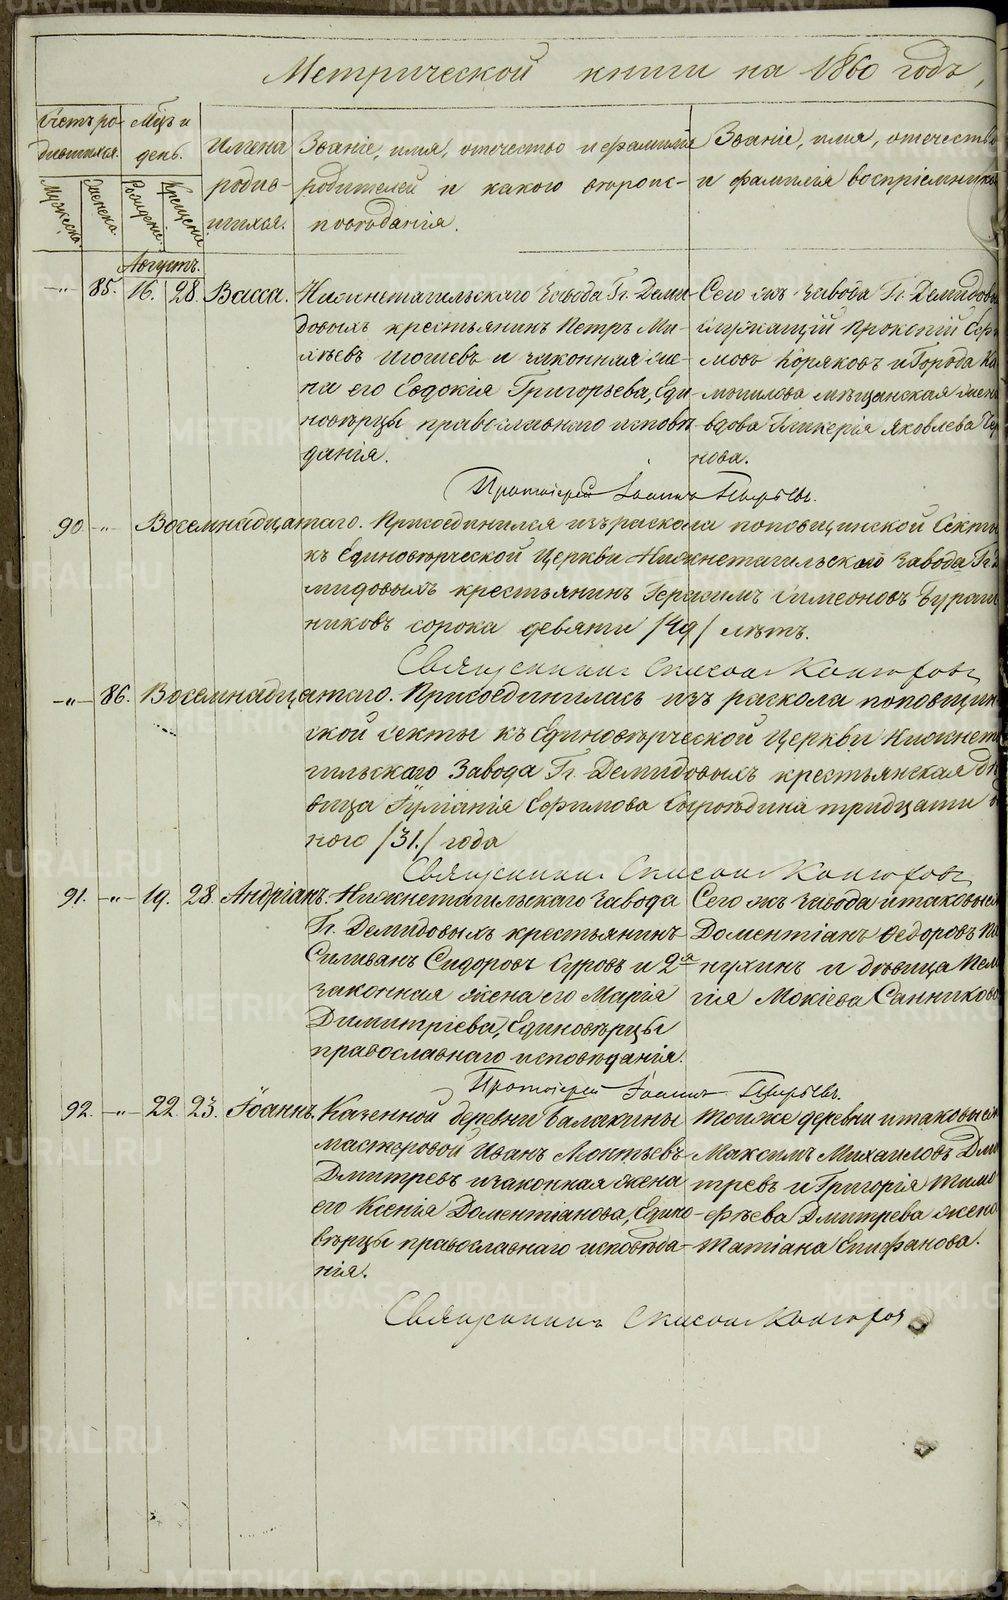 Метрической книги на 1860 годъ,
Счетъ ро-
дившихся.
Мужеска.
Женска.
Мѣсяцъ и
день.
Рожденіе.
Крещеніе.
Имена
родив-
шихся.
Званіе, имя, отечество и фамилія
родителей и какого вѣроис-
повѣданія.
Званіе, имя, отечество
и фамилія воспріемник
Августъ.
-"- 85. 16. 28. Васса.
Нижнетагильскаго завода Гг. Деми-
довыхъ крестьянинъ Петръ Ми-
хѣевъ и законная же-
на его Евдокія Григорьева, Еди-
новѣрцы православнаго исповѣ-
данія.
Сего жъ завода Гг. Демидовы
служащій Прокопій
Коряковъ и Города Ка
мышлова мѣщанская жен
вдова Гликерія Яковлева Чер
нова.
Протоіерей Іоаннъ
90 -"- Восемнадцатаго. Присоединился изъ раскола поповщинской Секты
къ Единовѣрческой Церкви Нижнетагильскаго завода Гг. Де
мидовыхъ крестьянинъ Герасимъ Симеоновъ
никовъ сорока девяти /49/ лѣтъ.
Священникъ Симеонъ
-"- 86. Восемнадцатаго. Присоединилась изъ раскола поповщин
ской секты къ Единовѣрческой Церкви Нижнета
гильскаго Завода Гг. Демидовыхъ крестьянская дѣ
вица Іуліанія Ефимова Сыроѣдина тридцати од
ного /31./ года
Священникъ Симеонъ
91. -"- 19. 28. Андріанъ.
Нижнетагильскаго завода
Гг. Демидовыхъ крестьянинъ
Силиванъ Сидоровъ Суровъ и 2я
законная жена его Марія
Димитріева, Единовѣрцы
православнаго исповѣданія.
Сего жъ завода и таковые ж
Доментіанъ Ѳедоровъ
нухинъ и дѣвица Пела
гія Мокіева Санникова
Протоіерей Іоаннъ
92. -"- 22. 23. Іоаннъ.
Казенной деревни Балакины
мастеровой Иванъ Леонтьевъ
Дмитревъ и законная жена
его Ксенія Доментіанова, Едино-
вѣрцы православнаго исповѣда-
нія.
Той же деревни и таковые ж
Максимъ Михаиловъ Дми
тревъ и Григорія Тимо
фѣева Дмитрева жена
Татіана Епифанова.
Священникъ Симеонъ
METRIKI.GASO-URAL.RU